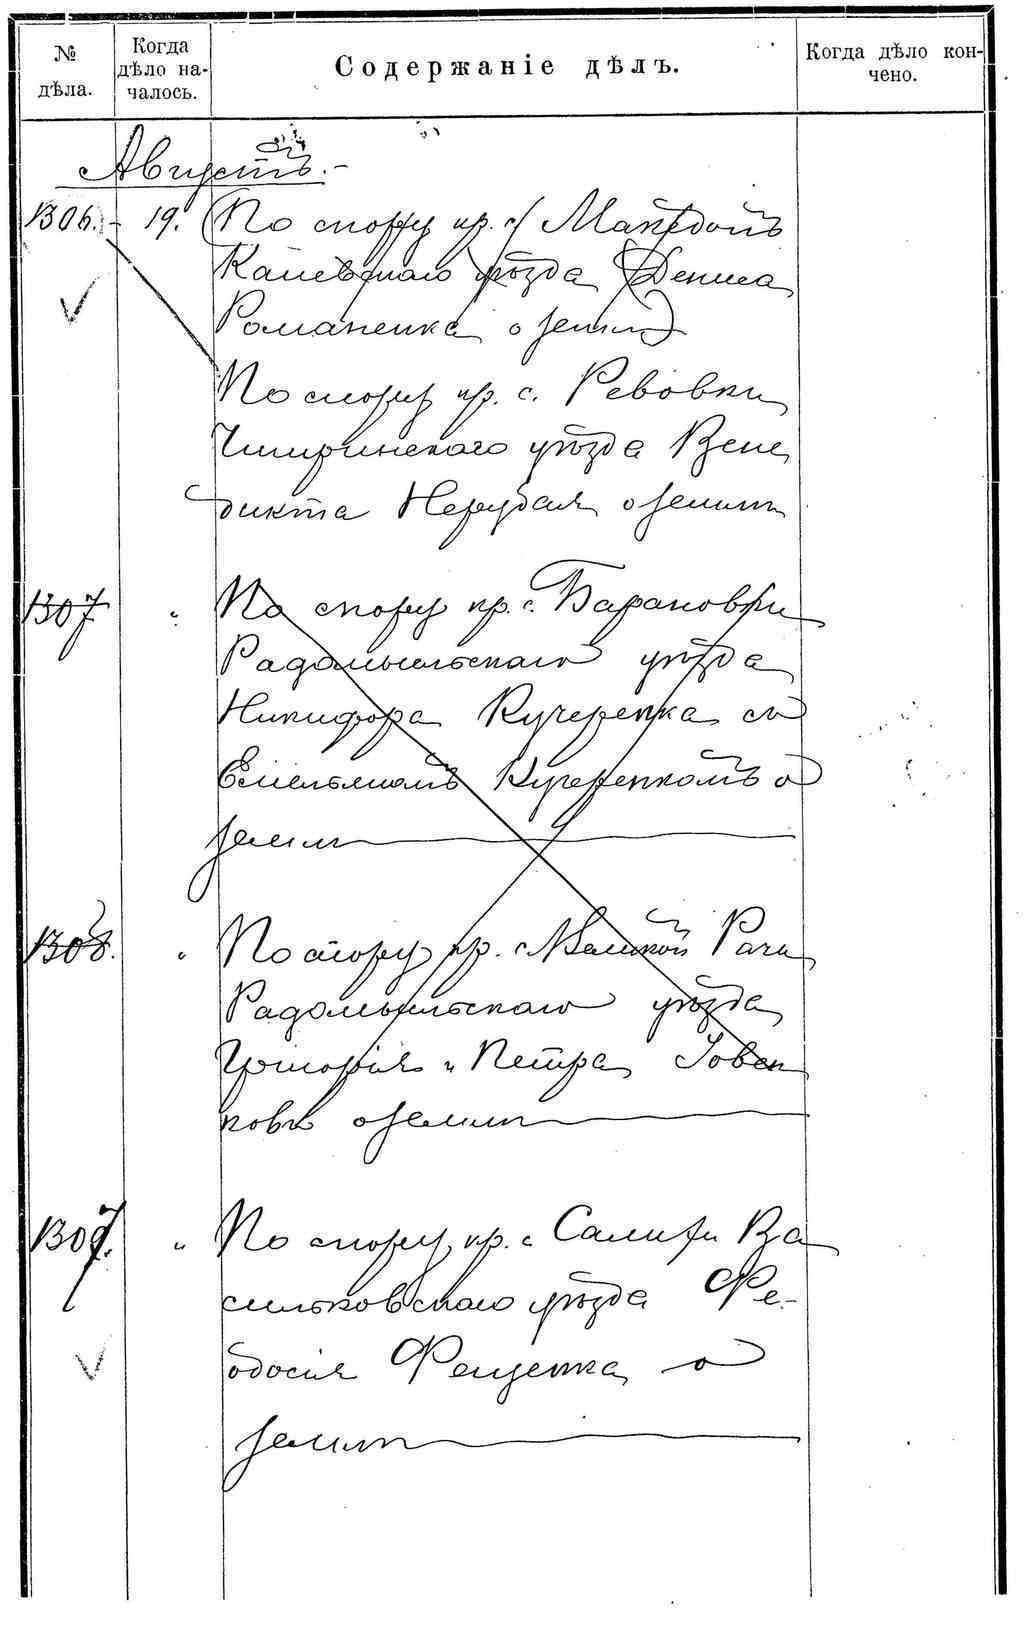 № дѣла.
Когда дѣло на-чалось.
Содержаніе дѣлъ.
Когда дѣло кон-чено.
Августъ.-
1306.- 19. (По спору кр. с.
Каневскаго уѣзда Дениса
Романенка о земли)
По спору кр. с. Ревовки
Чигиринскаго уѣзда Вене
дикта Нерубая о земли
1307 " По спору кр. с. Барановки
Радомысльскаго уѣзда
Никифора Кучеренка съ
Емельяномъ Кучеренкомъ о
земли
1308. " По спору кр. с. Великой Рачи
Радомысльскаго уѣзда
Григорія и Петра Іовен
ковъ о земли
1307. " По спору кр. с. Ва
сильковскаго уѣзда Фе-
одосія Фещенка о
земли